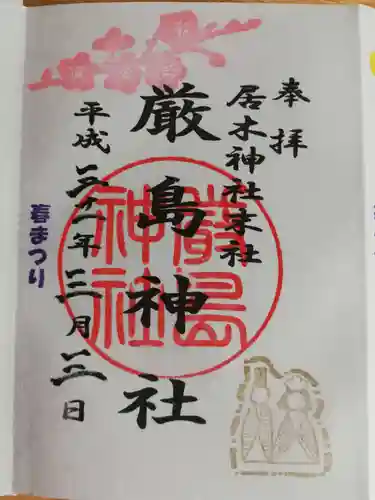 奉拝
居木神社末社
厳島神社
平成三十一年三月三日
春まつり
嚴島
神社